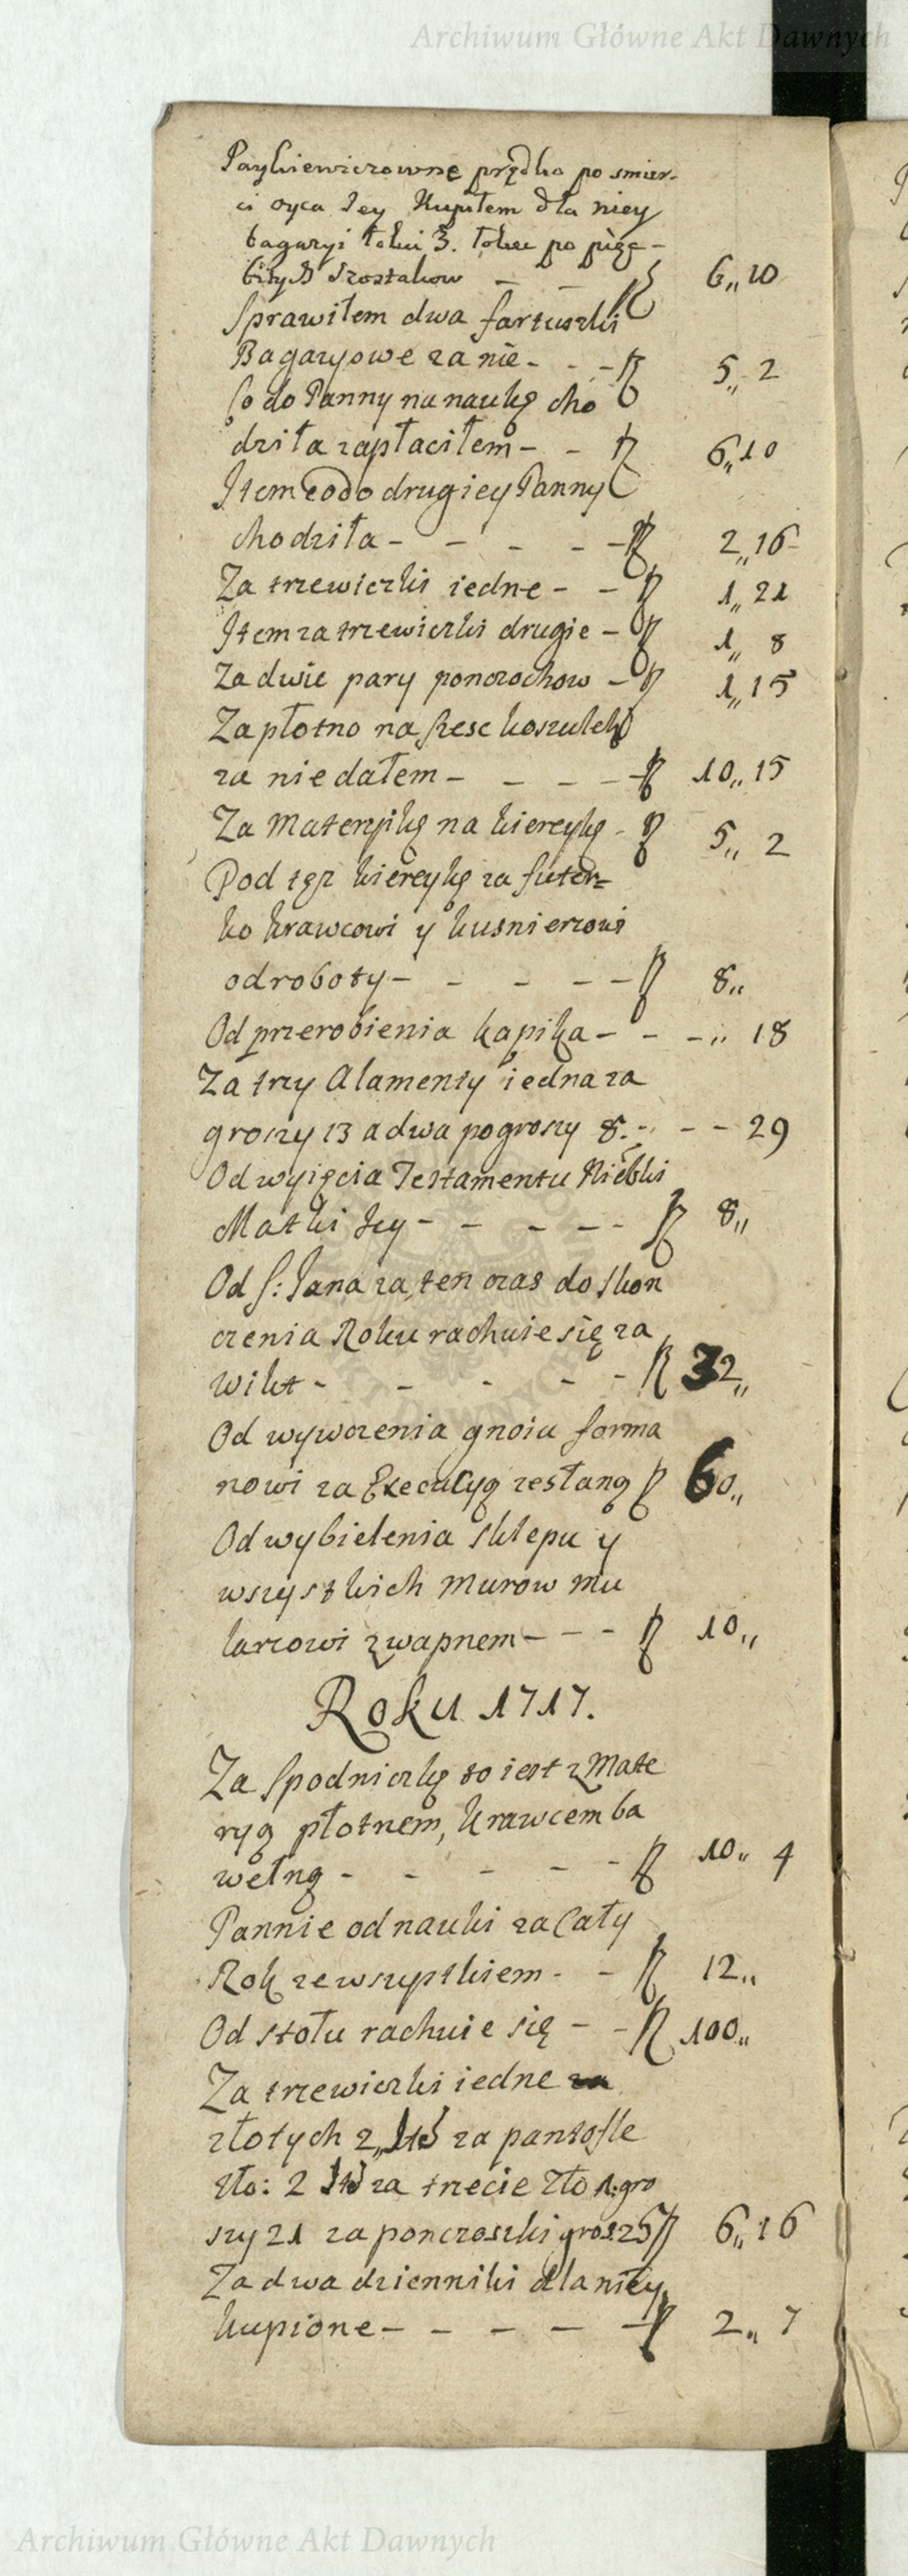 Archiwum Główne Akt Dawnych
Paykiewiczowne prędko po smier-
ci oyca Jey Kupiłem dla niey
bagazyi łokci 3. łokec po pięc-
bitych szostakow - - 6„ 10
Sprawiłem dwa fartuszki
Bagazyowe za nie - - - 5„ 2
Co do Panny na naukę cho
dziła zapłaciłem - - 6„ 10
Item co do drugiey Panny
chodziła - - - - - 2„ 16
Za trzewiczki iedne - - 1„ 21
Item za trzewiczki drugie - 1„ 8
Za dwie pary ponczochow - 1„ 15
Za płotno na szesc koszulek
za nie dałem - - - - - 10„ 15
Za Materyikę na kiereykę - 5„ 2
Pod tęz kiereykę za futer=
ko krawcowi y kusnierzowi
od roboty - - - - - 8„
Od przerobienia kapika - - -„ 18
Za trzy Alamenty iedna za
groszy 13 a dwa po groszy 8. - - - 29
Od wyięcia Testamentu
Matki Jey - - - - - 8„
Od S: Jana za ten czas do skon
czenia Roku rachuie się za
wikt - - - - - 32„
Od wywozenia gnoiu forma
nowi za Execucyą zesłaną 60„
Od wybielenia sklepu y
wszystkich murow mu
larzowi z wapnem - - - 10„
Roku 1717.
Za spodniczkę to iest z Mate
ryą płotnem, krawcem ba
wełną - - - - - 10„ 4
Pannie od nauki za Cały
Rok ze wszystkiem - - 12„
Od stołu rachuie się - - 100„
Za trzewiczki iedne za
złotych 2„ za pantofle
zło: 2 za trzecie zło 1: gro
szy 21 za ponczoszki gros: 25 6„ 16
Za dwa dzienniki dla niey
kupione - - - - - 2„ 7
Archiwum Główne Akt Dawnych